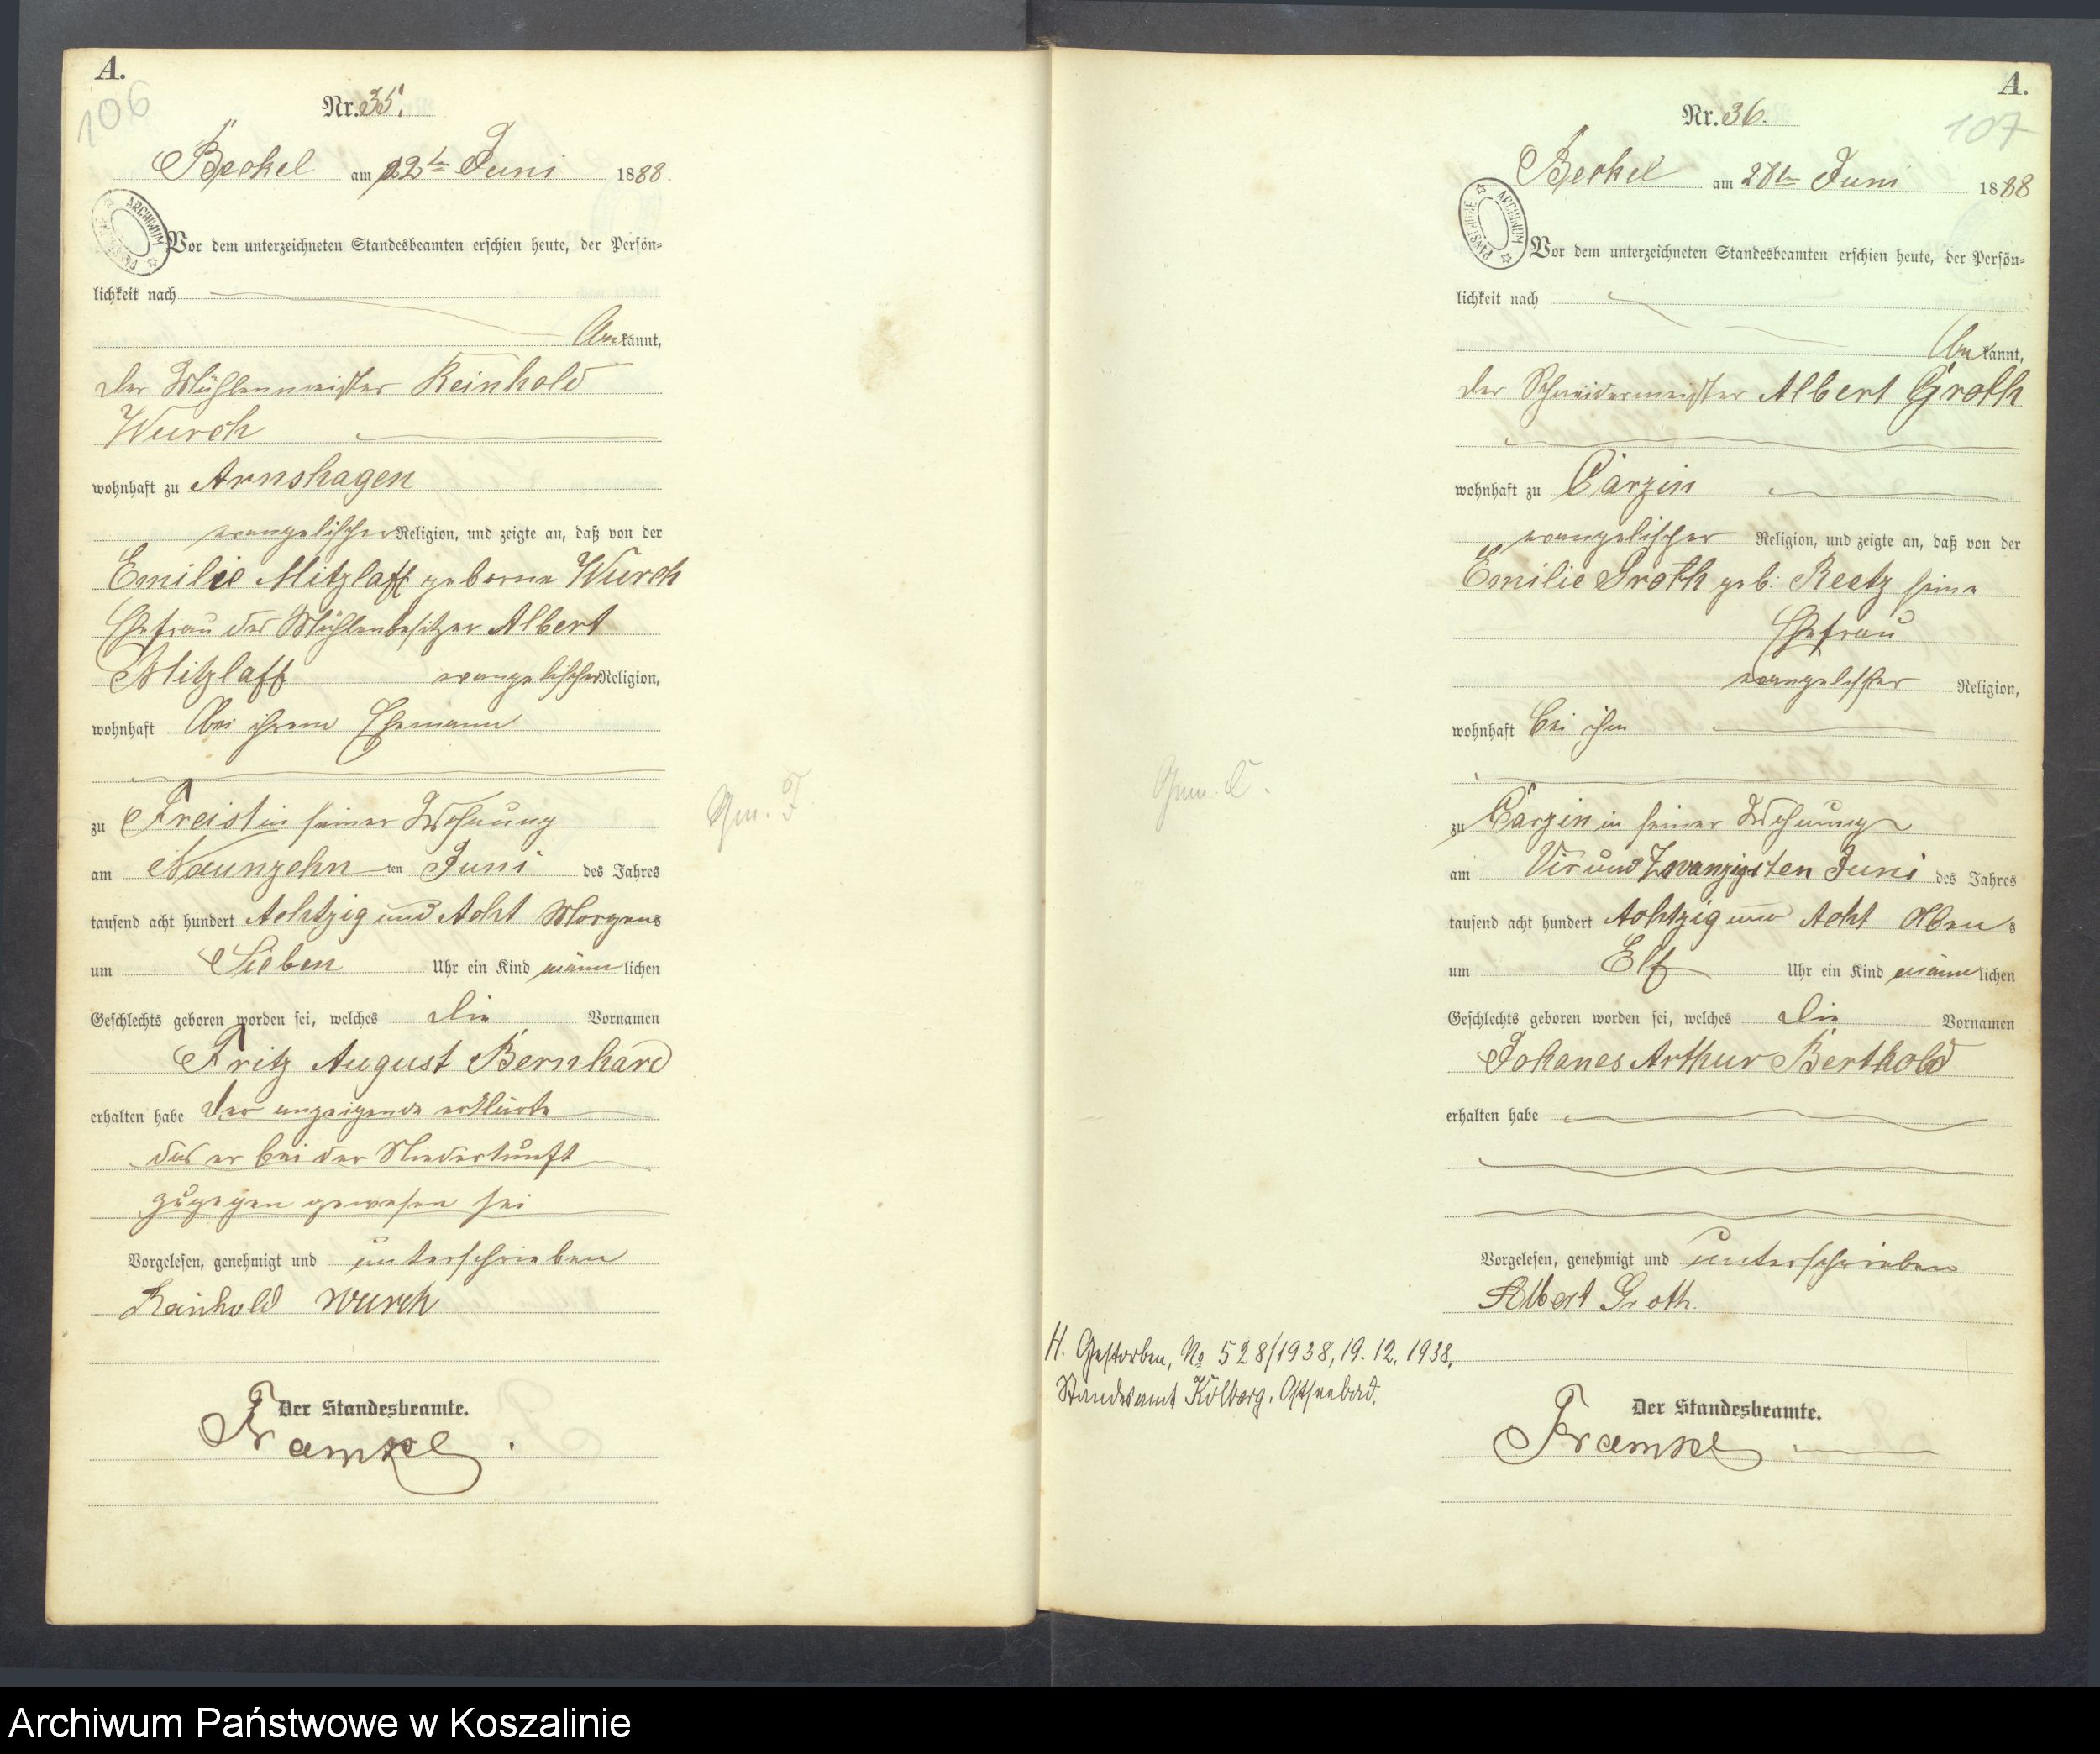 A.
106
Nr. 35.
Beckel am 22ten Juni 1888
ARCHIWUM PAŃSTWOWE
Vor dem unterzeichneten Standesbeamten erschien heute, der Persön-
lichkeit nach
bekannt,
der Mühlenmeister Reinhold
Wurch
wohnhaft zu Arnshagen
evangelischer Religion, und zeigte an, daß von der
Emilie Mitzlaff geborne Wurch
Ehefrau des Mühlenbesitzer Albert
Mitzlaff evangelischer Religion,
wohnhaft bei ihrem Ehemann
zu Freist in seiner Wohnung
am Neunzehn ten Juni des Jahres
tausend acht hundert Achtzig und Acht Morgens
um Sieben Uhr ein Kind männlichen
Geschlechts geboren worden sei, welches die Vornamen
Fritz August Bernhard
erhalten habe der anzeigende erklärte
das er bei der Niederkunft
zugegen gewesen sei
Vorgelesen, genehmigt und unterschrieben
Reinhold Wurch
Der Standesbeamte.
Gem. F
A.
107
Nr. 36.
Beckel am 28ten Juni 1888
ARCHIWUM PAŃSTWOWE
Vor dem unterzeichneten Standesbeamten erschien heute, der Persön-
lichkeit nach
bekannt,
der Schneidermeister Albert Groth
wohnhaft zu Carzin
evangelischer Religion, und zeigte an, daß von der
Emilie Groth geb: Reetz seine
Ehefrau
evangelischer Religion,
wohnhaft bei ihm
zu Carzin in seiner Wohnung
am Vierundzwanzigsten Juni des Jahres
tausend acht hundert Achtzig und Acht Abends
um Elf Uhr ein Kind männlichen
Geschlechts geboren worden sei, welches die Vornamen
Johanes Arthur Berthold
erhalten habe
Vorgelesen, genehmigt und unterschrieben
Albert Groth.
Der Standesbeamte.
Gem. C.
H. Gestorben, No 528/1938, 19. 12. 1938.
Standesamt Kolberg, Ostseebad.
Archiwum Państwowe w Koszalinie